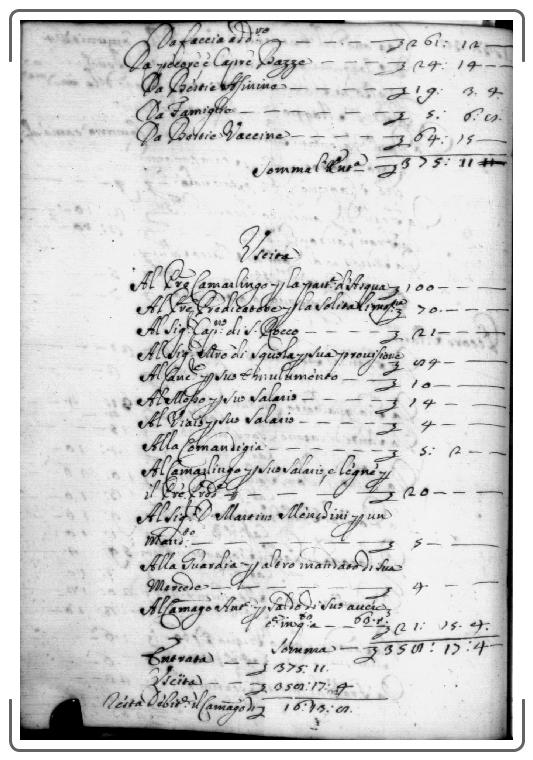 Da faccia adro — — ʒ 261: 12 —
Da pecore è Capre Bazze — — ʒ 24: 14 —
Da Bestie Asinine — — ʒ 19: 3. 4.
Da Famiglie — — ʒ 5: 6: 8.
Da Bestie Vaccine — — ʒ 64: 15 —
Somma l'Entta — ʒ 375: 11
Uscita
Al Pre Camarlingo p la parte d'Acqua ʒ 100 — —
Al Pre Predicatore p la solita limosina ʒ 70 — —
Al Sigr Capno di S. Rocco — — ʒ 21 — —
Al Sigr Mro di Squola p sua provisione ʒ 84 — —
Al Cancre p suo emulumento — ʒ 10 — —
Al Messo p suo salario — — ʒ 14 — —
Al Viaio p suo salario — — ʒ 4 — —
Alla Comandigia — — ʒ 5: 2 —
Al Camarlingo p suo salario, e légne p
il Pre — — ʒ 20 — —
Al Sigr D. Martino Menchini p un
Mando — — ʒ 5 — —
Alla Guardia p altro mandato di sua
Mercede — — ʒ 4 — —
Al Camago Ant. p saldo di suo
ʒ 21: 15. 4.
Somma — ʒ 358: 17: 4
Entrata — ʒ 375. 11.
Uscita — ʒ 358: 17. 4
Resta Debitre il Camago di ʒ 16: 13: 8.